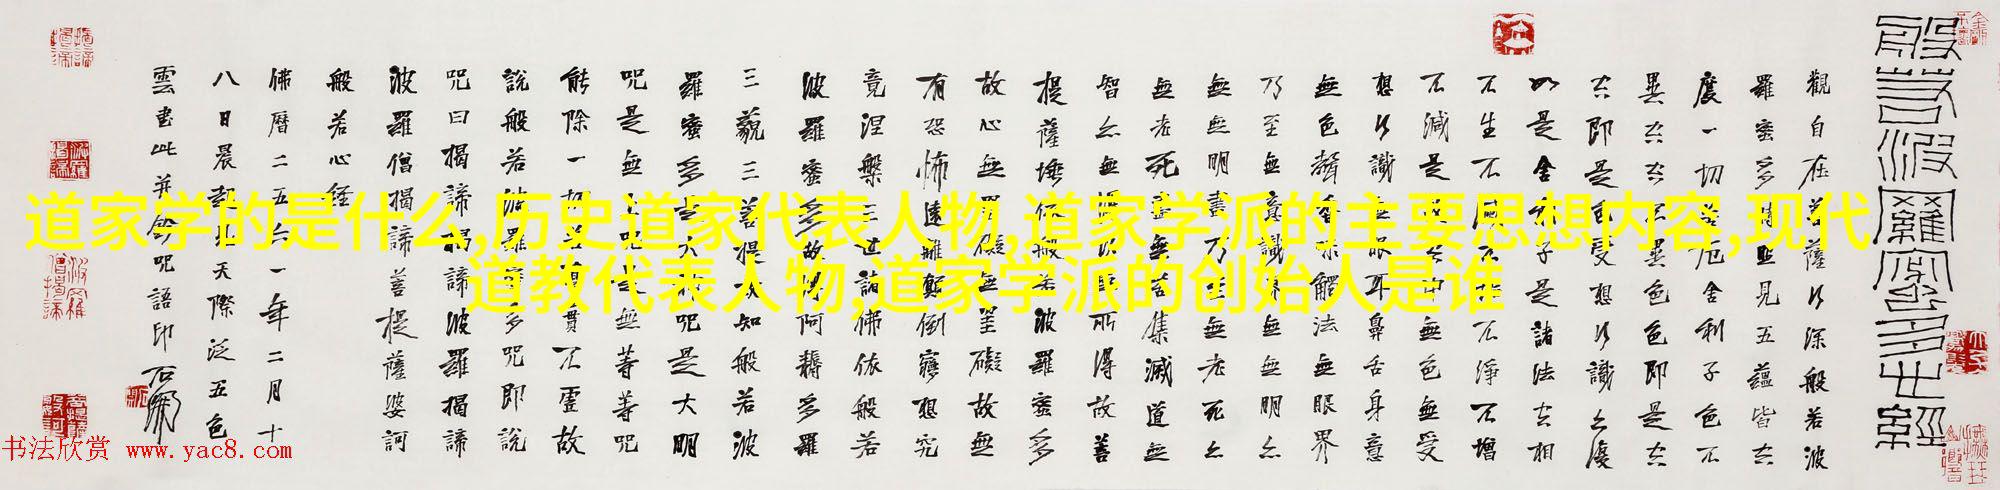 道家学的是什么,历史道家代表人物,道家学派的主要思想内容,现代
道教代表人物,道家学派的创始人是谁
般若波羅蜜多心經
觀自在菩薩行深般若波
羅蜜多時照見五蘊皆空
度一切苦厄舍利子色不
異空空不異色色即是空
空即是色受想行識亦復
如是舍利子是諸法空相
不生不滅不垢不淨不增
不減是故空中無色無受
想行識無眼耳鼻舌身意
無色聲香味觸法無眼界
乃至無意識界無無明亦
無無明盡乃至無老死亦
無老死盡無苦集滅道無
智亦無得以無所得故菩
提薩埵依般若波羅蜜多
故心無罣礙無罣礙故無
有恐怖遠離顛倒夢想究
竟涅槃三世諸佛依般若
波羅蜜多故得阿耨多羅
三藐三菩提故知般若波
羅蜜多是大神咒是大明
咒是無上咒是無等等咒
能除一切苦真實不虛故
說般若波羅蜜多咒即說
咒曰揭諦揭諦波羅揭諦
波羅僧揭諦菩提薩婆訶
般若心經
佛曆二五六一年二月十
八日晨起天際泛五色
雲書此并鈐咒語印
书法欣赏 www.yac8.com